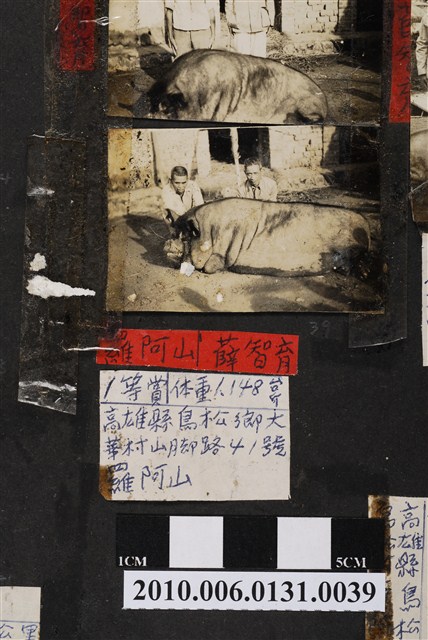 羅阿山 薛智育
1等賞体重1.148
高雄縣鳥松鄉大
華村山脚路41號
羅阿山
39
高雄縣鳥松
1CM
5CM
2010.006.0131.0039